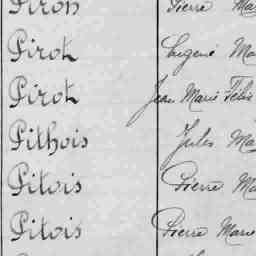 Piron Pierre Ma
Pirot Eugène Ma
Pirot Jean Marie Félix
Pithois Jules Ma
Pitois Pierre Ma
Pitois Pierre Marie